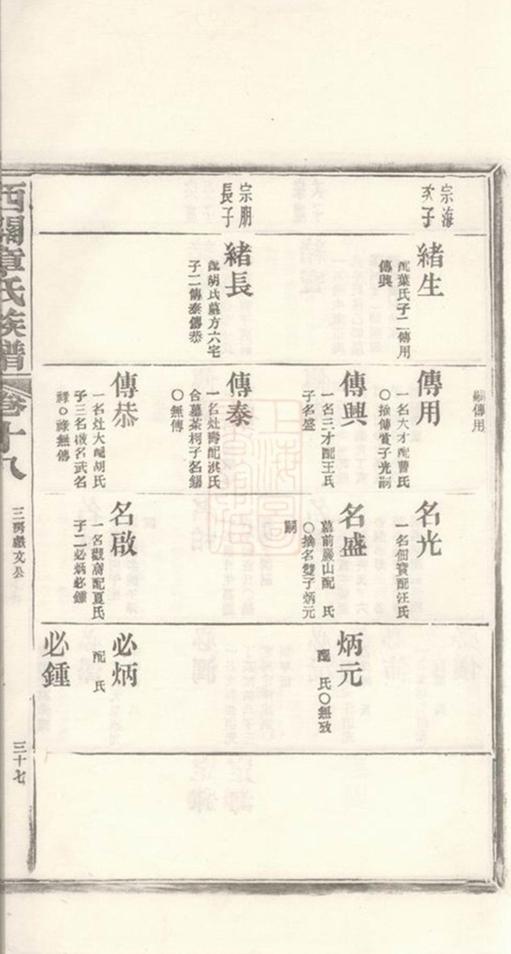 宗海
次子
緒生
配葉氏子二傳用
傳興
宗朋
長子
緒長
配胡氏墓方六宅
子二傳泰傳恭
嗣傳用
傳用
一名大才配曹氏
傳興
一名三才配王氏
子名盛
傳泰
一名灶壽配洪氏
合墓茶柯子名錫
〇無傳
傳恭
一名灶大配胡氏
子三名啟名武名
祿〇祿無傳
名光
一名佃寶配汪氏
名盛
墓前嚴山配 氏
嗣
名啟
配夏氏
子二必炳必鍾
炳元
配 氏〇無攷
必炳
配 氏
必鍾
西關章氏族譜
卷十八
三房獻文公
三十七